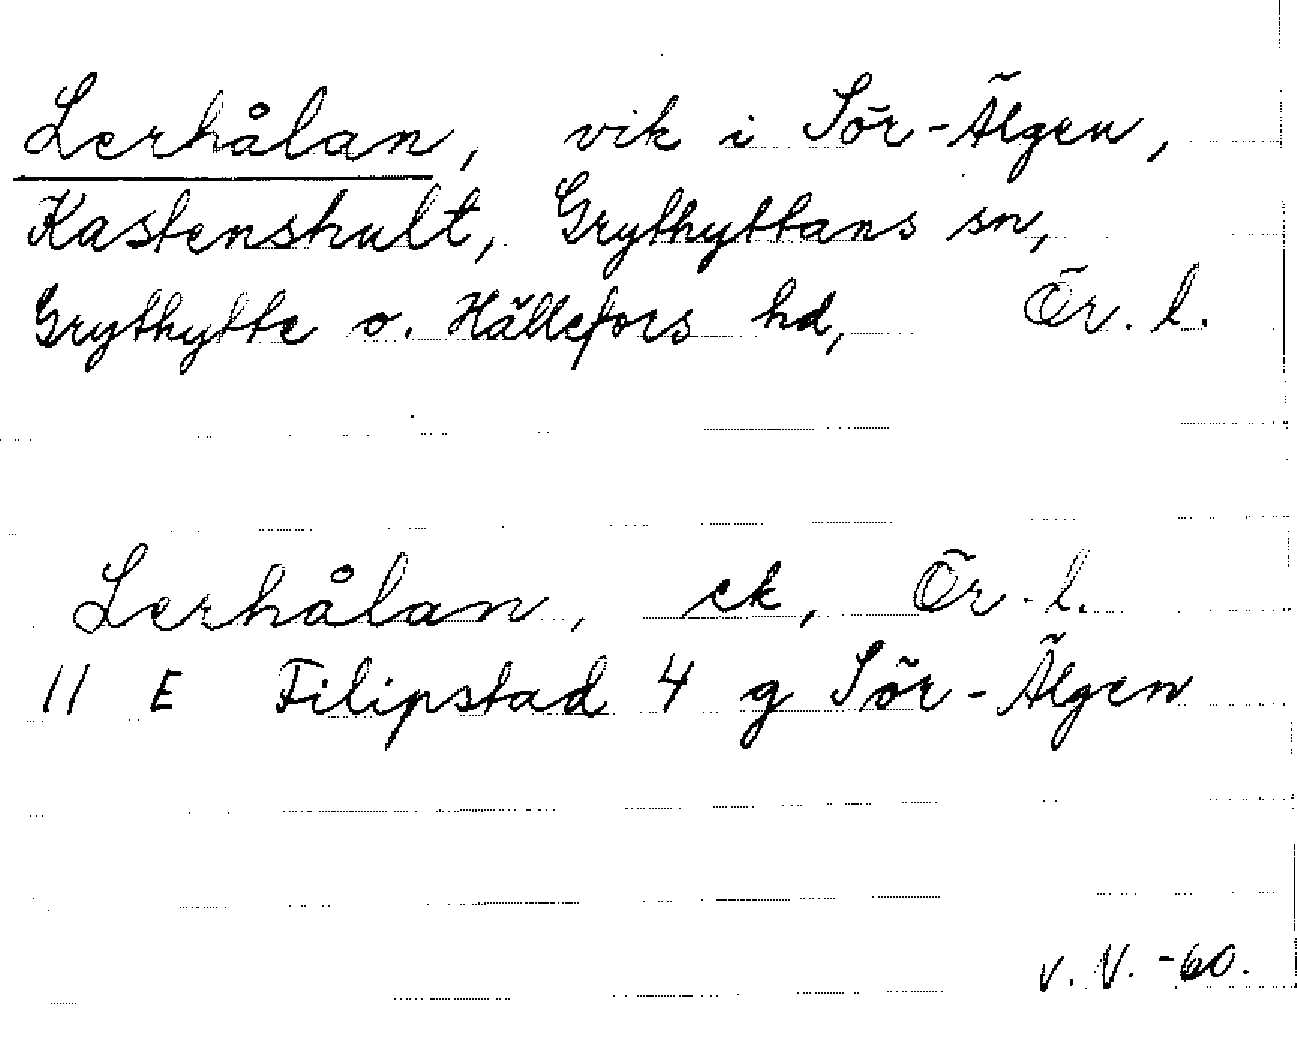 Lerhålan, vik i Sör-Älgen,
Kastenshult, Grythyttans sn,
Grythytte o. Hällefors hd, Ör. l.
Lerhålan, ek, Ör. l.
11 E Filipstad 4 g Sör-Älgen
v. V. -60.